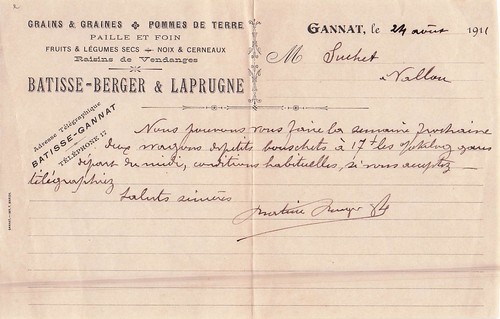 GRAINS & GRAINES ✤ POMMES DE TERRE
PAILLE ET FOIN
FRUITS & LÉGUMES SECS NOIX & CERNEAUX
Raisins de Vendanges
BATISSE-BERGER & LAPRUGNE
Adresse Télégraphique
BATISSE-GANNAT
TÉLÉPHONE 17
GANNAT, le 24 août 1911
M Suchet
à Vallon
Nous pouvons vous faire la semaine prochaine
deux wagons petits bouschets à 17 f les gare
départ du midi, conditions habituelles, si vous acceptez
télégraphiez
Saluts sincères